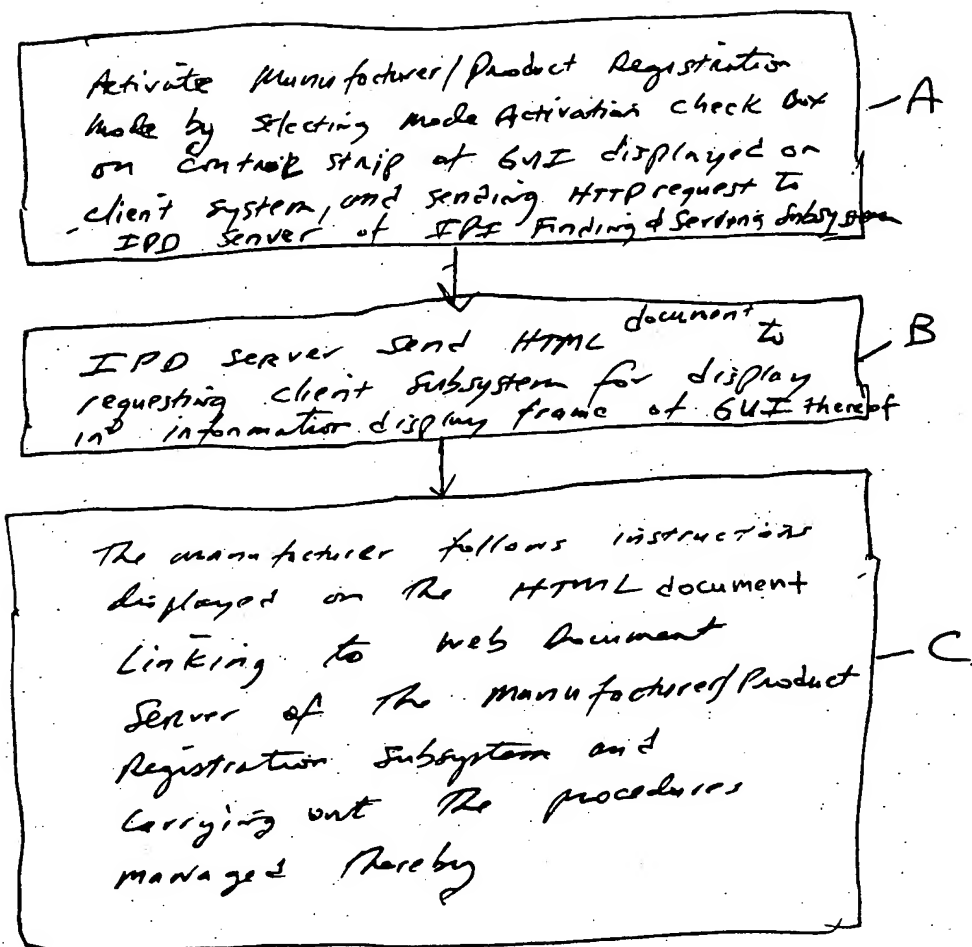 Activate Manufacturer/Product Registration
Mode by selecting mode Activation check Box
on control strip of GUI displayed on
client system, and sending HTTP request to
IPD server of IPI Finding & Serving Subsystem
A
IPD server send HTML document to
requesting client subsystem for display
in information display frame of GUI thereof
B
The manufacturer follows instructions
displayed on the HTML document
Linking to web Document
Server of the Manufacturer/Product
Registration Subsystem and
Carrying out the procedures
managed thereby
C